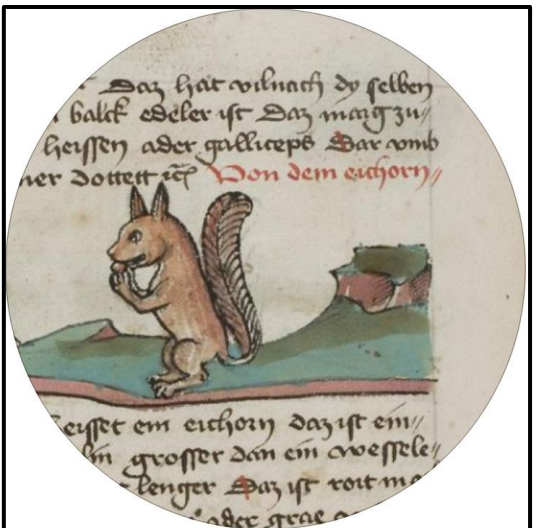 Daz hat vilnach dy selben
balck edeler ist Daz marg zu//
heissen ader galliceps Dar vmb
ner dottett
Von dem eichorn//
heisset em eichorn daz ist ein//
grosser dan ein wessele//
lenger Daz ist roit
ader grae